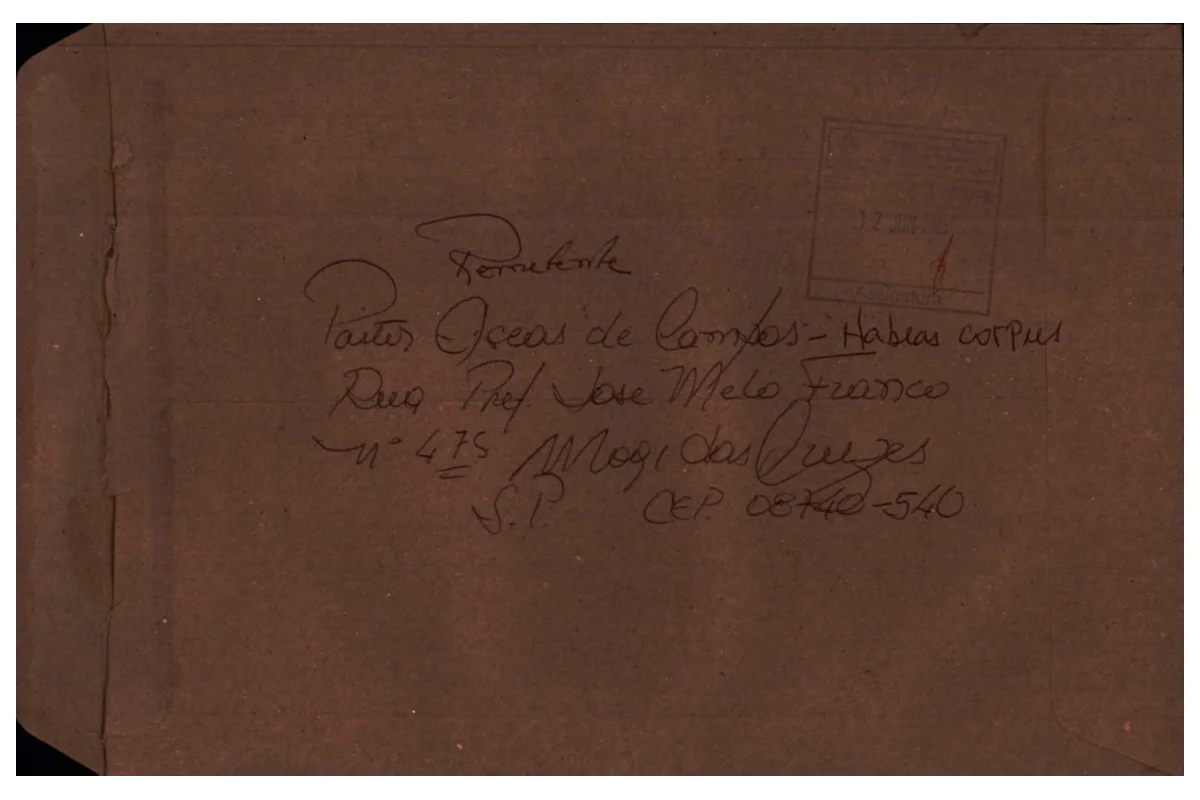 12 JUN
Assinatura
Remetente
Pastor Oseas de Campos - Habeas corpus
Rua Pref. Jose Melo Franco
nº 475 Mogi das Cruzes
S.P. CEP. 08740-540